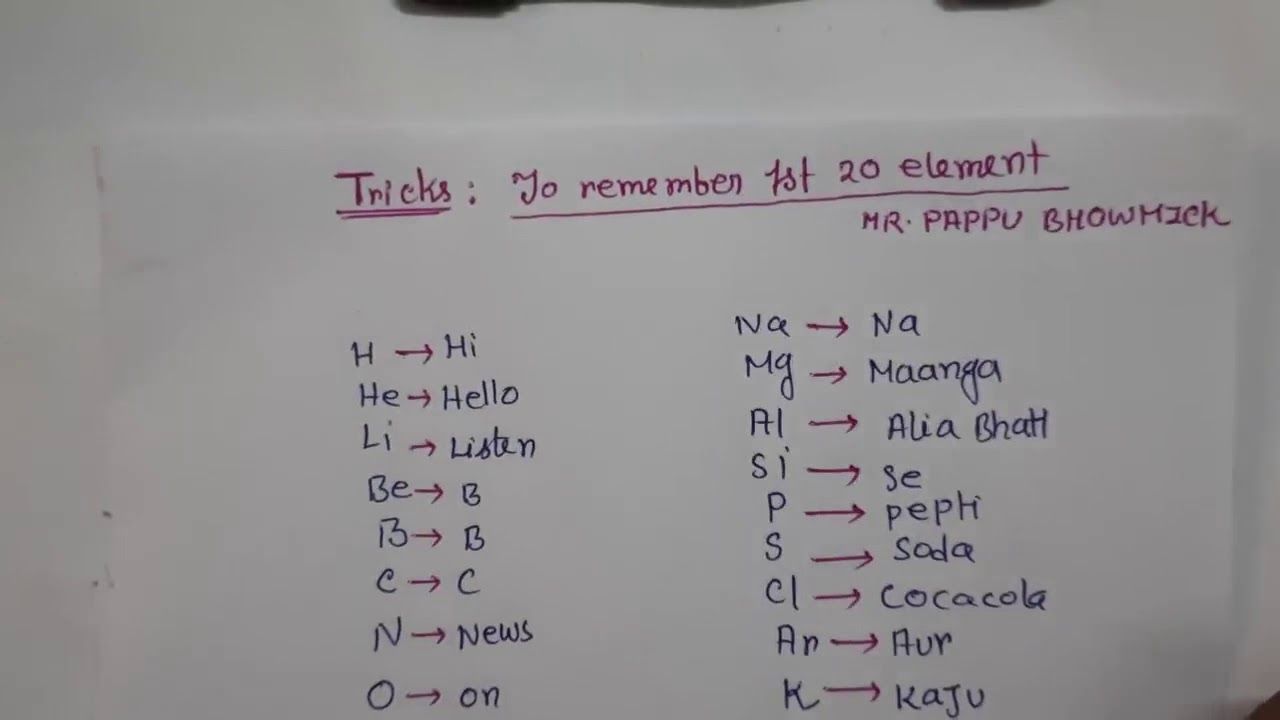 Tricks: To remember 1st 20 element
MR. PAPPU BHOWMICK
H → Hi
He → Hello
Li → Listen
Be → B
B → B
C → C
N → News
O → on
Na → Na
Mg → Maanga
Al → Alia Bhatt
Si → Se
P → pepti
S → Soda
Cl → Cocacola
Ar → Aur
K → KaJu